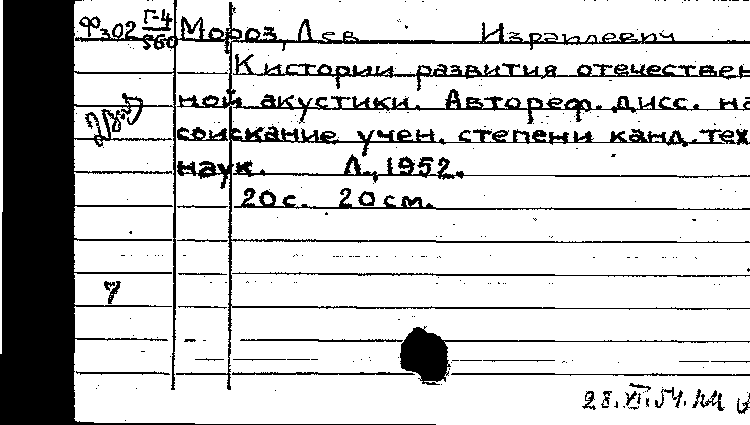 Ф302 Г-4/560 Мороз, Лев Израилевич
К истории развития отечествен
ной акустики. Автореф. дисс. на
соискание учен. степени канд. тех
наук. Л., 1952.
20 с. 20 см.
7
28.XI.54.